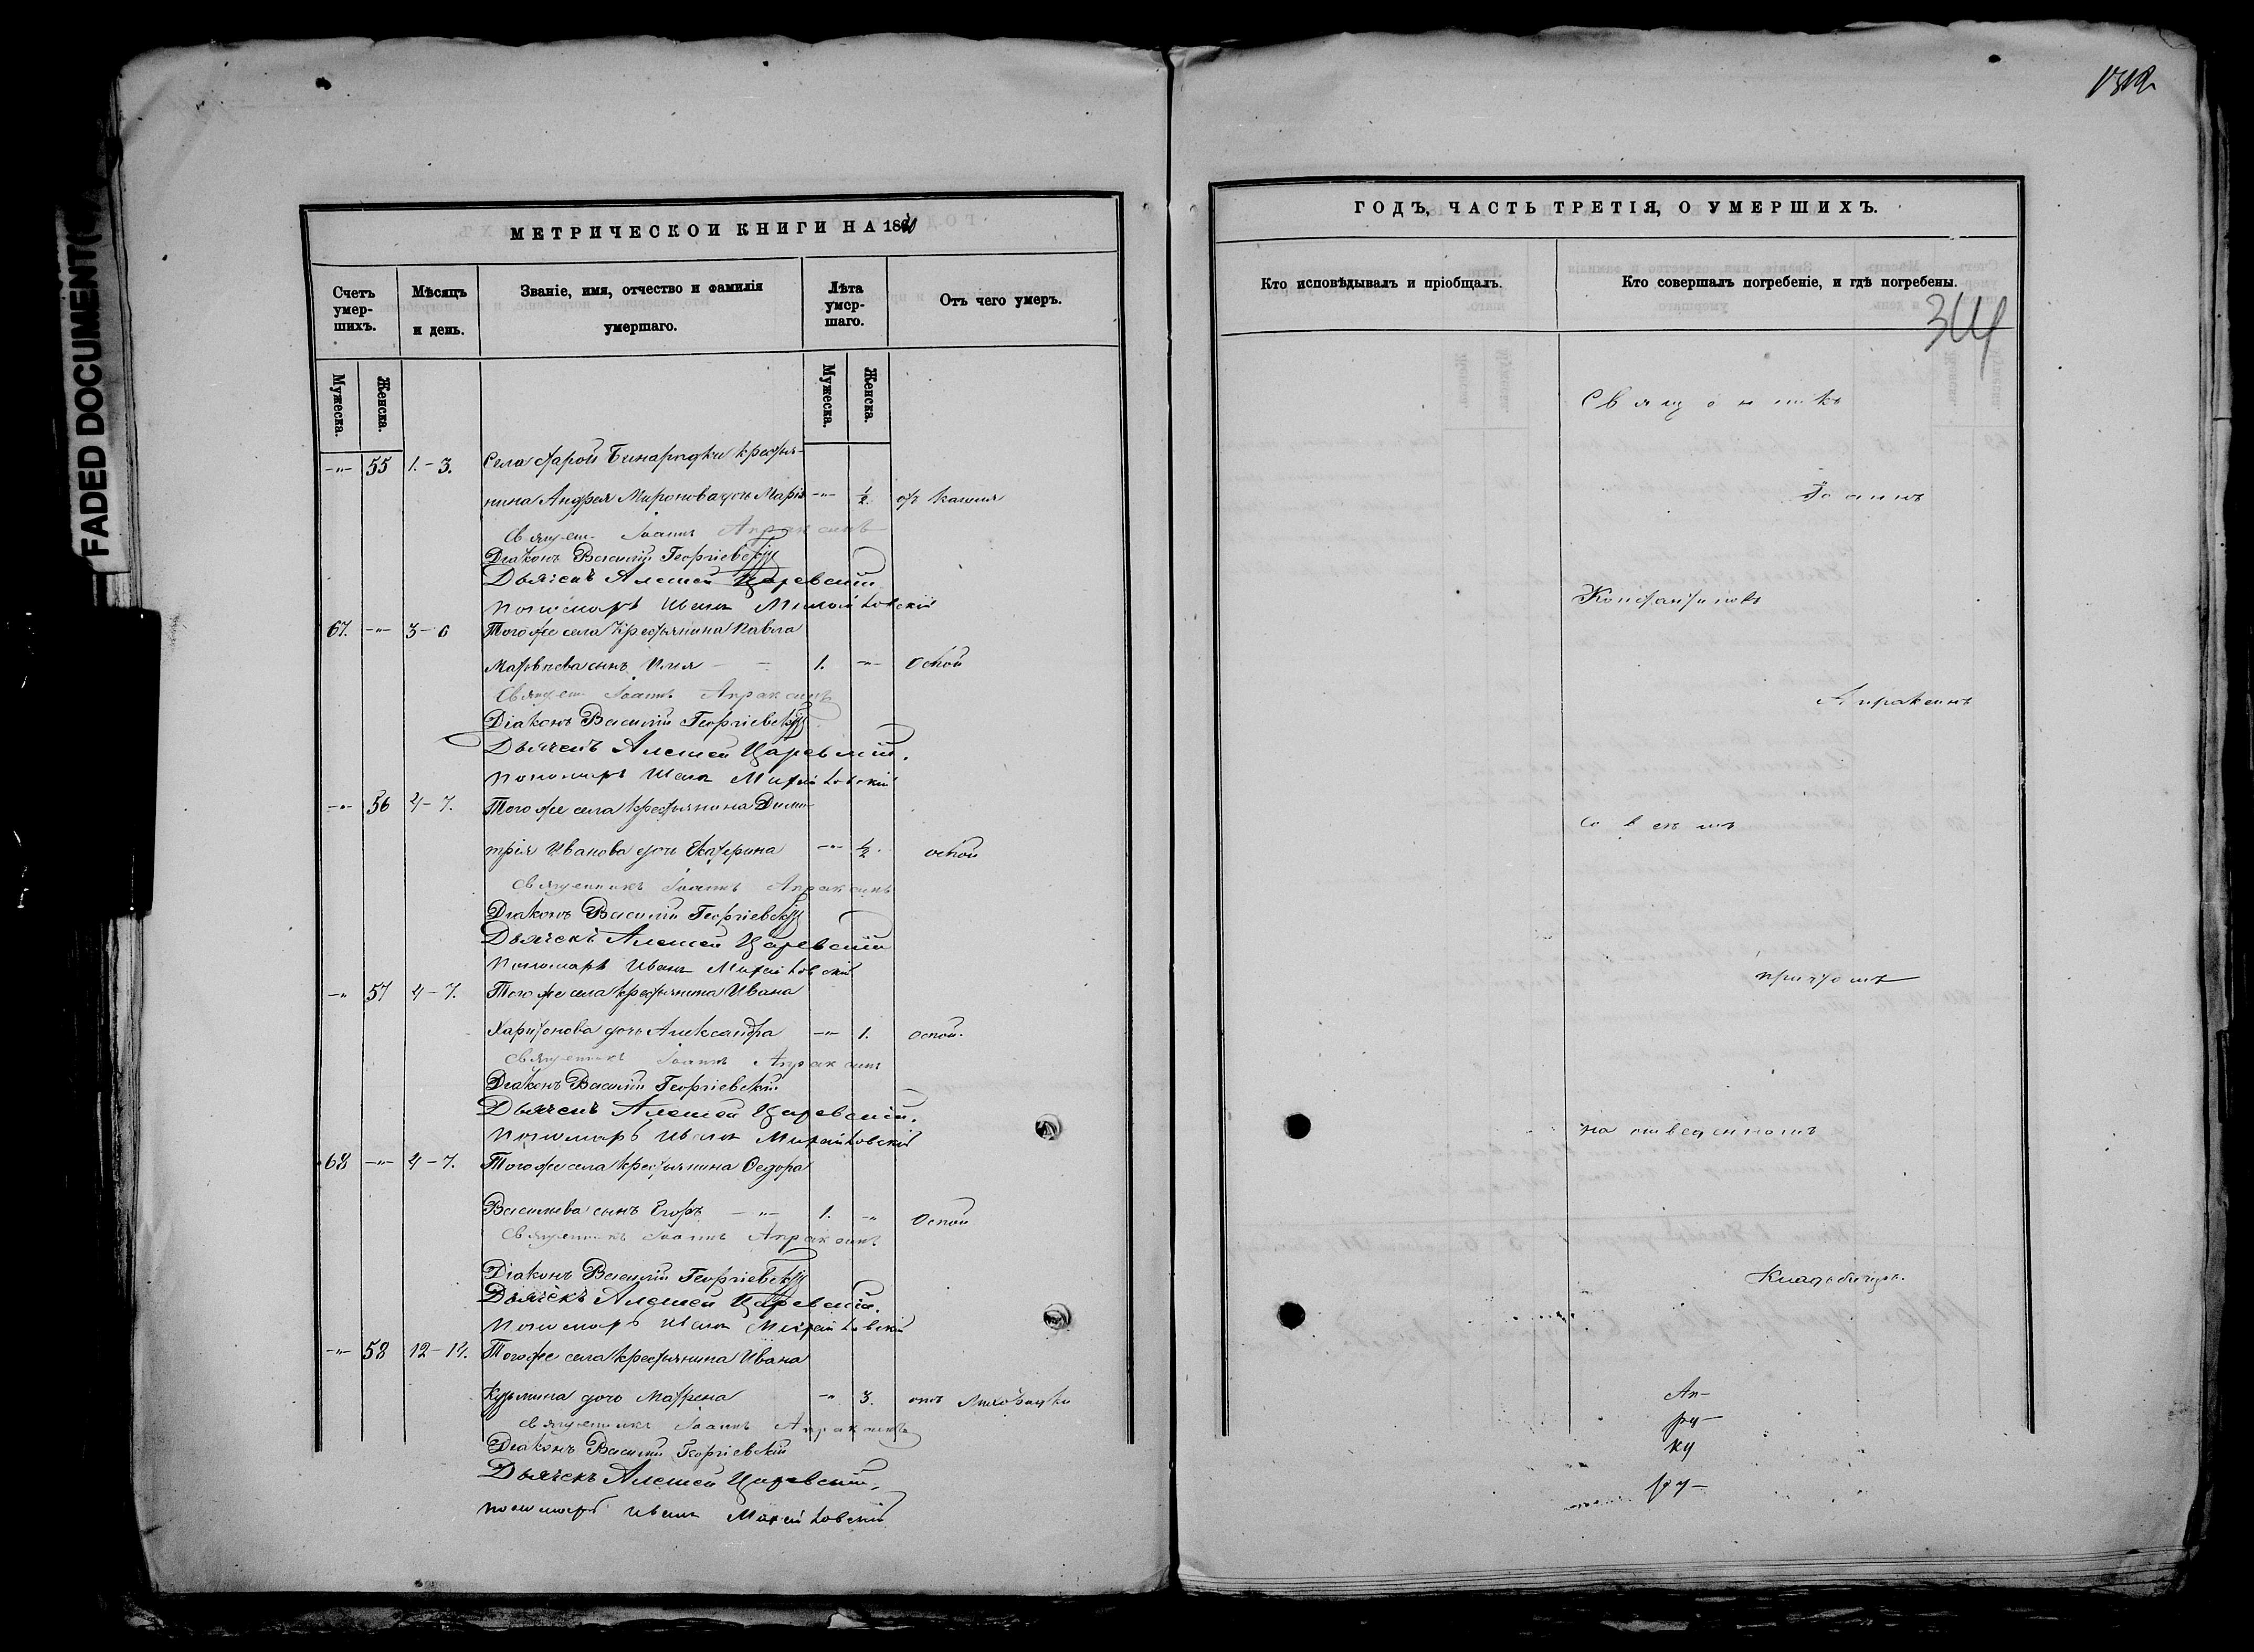 FADED DOCUMENT(
МЕТРИЧЕСКОЙ КНИГИ НА 186
Счетъ умер-шихъ.
Мѣсяцъ и день.
Званіе, имя, отчество и фамилія умершаго.
Лѣта умер-шаго.
Отъ чего умеръ.
Мужеска.
Женска.
Мужеска.
Женска.
-"- 55 1.-3. Села Старой Бинарадки крестья-
нина Андрея Миронова дочь Марія -"- ½ отъ кашля
Священ. Іоаннъ Апраксинъ
Діаконъ Василій Георгіевскій
Дьячекъ Алексей Царевскій
Пономарь Иванъ
67. -"- 3-6 Того же села крестьянина Павла
Матвѣева сынъ Илья - - 1. -"- Оспой
Священ. Іоаннъ Апраксинъ
Діаконъ Василій Георгіевскій
Дьячекъ Алексей Царевскій.
Пономарь Иванъ
-"- 56 4-7. Того же села крестьянина Дими-
трія Иванова дочь Екатерина -"- ½. оспой
Священникъ Іоаннъ Апраксинъ
Діаконъ Василій Георгіевскій
Дьячекъ Алексей Царевскій
Пономарь Иванъ
-" 57 4-7. Того же села крестьянина Ивана
Харитонова дочь Александра -"- 1. оспой.
Священникъ Іоаннъ Апраксинъ
Діаконъ Василій Георгіевскій
Дьячекъ Алексей Царевскій.
Пономарь Иванъ
68 -"- 4-7. Того же села крестьянина Ѳедора
Васильева сынъ Егоръ -"- 1. -" Оспой
Священникъ Іоаннъ Апраксинъ
Діаконъ Василій Георгіевскій
Дьячекъ Алексей Царевскій.
Пономарь Иванъ
-"- 58 12-14. Того же села крестьянина Ивана
Кузьмина дочь Матрена -" 3. отъ лихорадки
Священникъ Іоаннъ Апраксинъ
Діаконъ Василій Георгіевскій
Дьячекъ Алексей Царевскій,
пономарь Иванъ
ГОДЪ, ЧАСТЬ ТРЕТІЯ, О УМЕРШИХЪ.
Кто исповѣдывалъ и пріобщалъ.
Кто совершалъ погребеніе, и гдѣ погребены.
Священникъ
Іоаннъ
Константиновъ
Апраксинъ
со всемъ
причтомъ
на отведенномъ
Кладбищѣ.